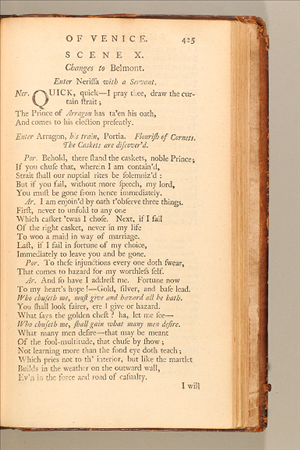 OF VENICE. 425
SCENE X.
Changes to Belmont.
Enter Nerissa with a Servant.
Ner. QUICK, quick—I pray thee, draw the cur-
tain strait;
The Prince of Arragon has ta'en his oath,
And comes to his election presently.
Enter Arragon, his train, Portia. Flourish of Cornets.
The Caskets are discover'd.
Por. Behold, there stand the caskets, noble Prince;
If you chuse that, wherein I am contain'd,
Strait shall our nuptial rites be solemniz'd:
But if you fail, without more speech, my lord,
You must be gone from hence immediately.
Ar. I am enjoin'd by oath t'observe three things.
First, never to unfold to any one
Which casket 'twas I chose. Next, if I fail
Of the right casket, never in my life
To woo a maid in way of marriage.
Last, if I fail in fortune of my choice,
Immediately to leave you and be gone.
Por. To these injunctions every one doth swear,
That comes to hazard for my worthless self.
Ar. And so have I addrest me. Fortune now
To my heart's hope!—Gold, silver, and base lead.
Who chuseth me, must give and hazard all he hath.
You shall look fairer, ere I give or hazard.
What says the golden chest? ha, let me see—
Who chuseth me, shall gain what many men desire.
What many men desire—that may be meant
Of the fool-multitude, that chuse by show;
Not learning more than the fond eye doth teach;
Which pries not to th' interior, but like the martlet
Builds in the weather on the outward wall,
Ev'n in the force and road of casualty.
I will